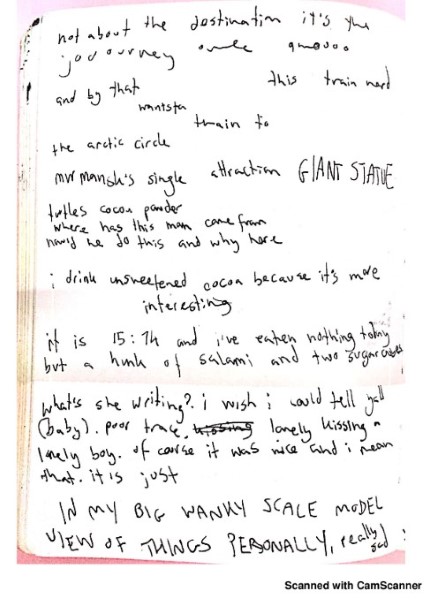 not about the destination it's the
journey
and by that this train nerd
wants to
train to
the arctic circle
single attraction GIANT STATUE
turtles cocoa powder
where has this man come from
how'd he do this and why here
i drink unsweetened cocoa because it's more
interesting
it is 15:14 and i've eaten nothing today
but a hunk of salami and two sugar cubes
what's she writing? i wish i could tell y'all
(baby). poor trace. kissing lonely kissing a
lonely boy. of course it was nice and i mean
that. it is just
IN MY BIG WANKY SCALE MODEL
VIEW OF THINGS PERSONALLY, really
sad
Scanned with CamScanner